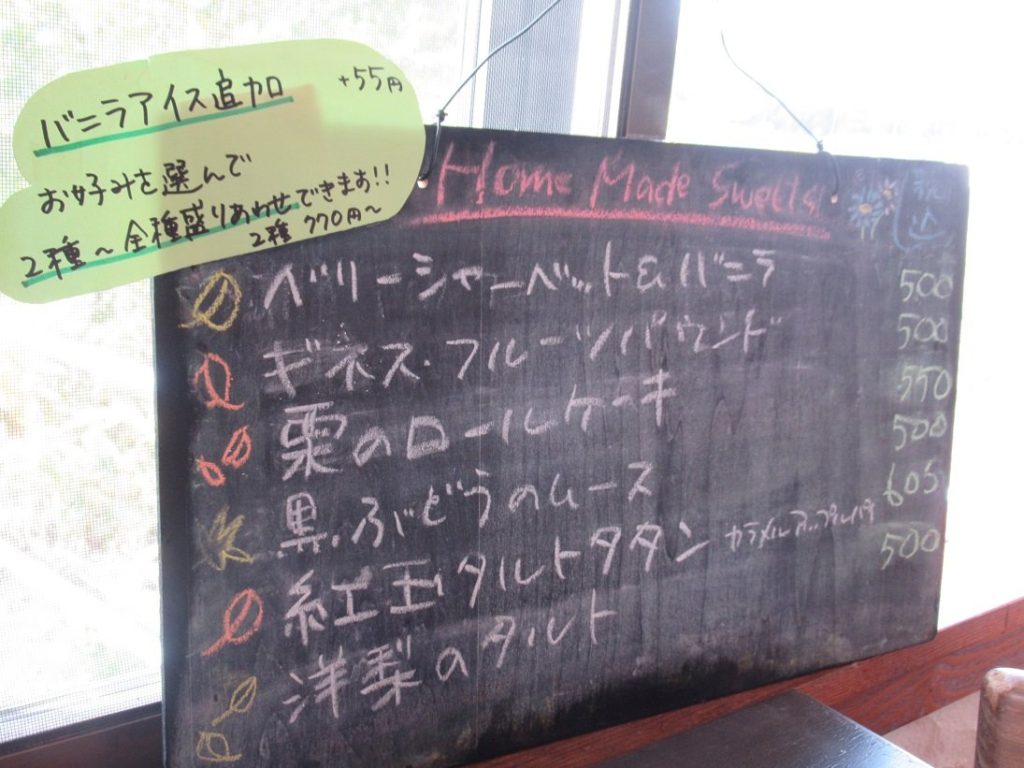 バニラアイス追加 +55円
お好みを選んで
2種～全種盛りあわせできます!!
2種 770円～
Home Made Sweets
税込
ベリーシャーベット&バニラ 500
ギネス・フルーツパウンド 500
栗のロールケーキ 550
黒ぶどうのムース 500
紅玉タルトタタン カラメルアップルパイ 605
洋梨のタルト 500